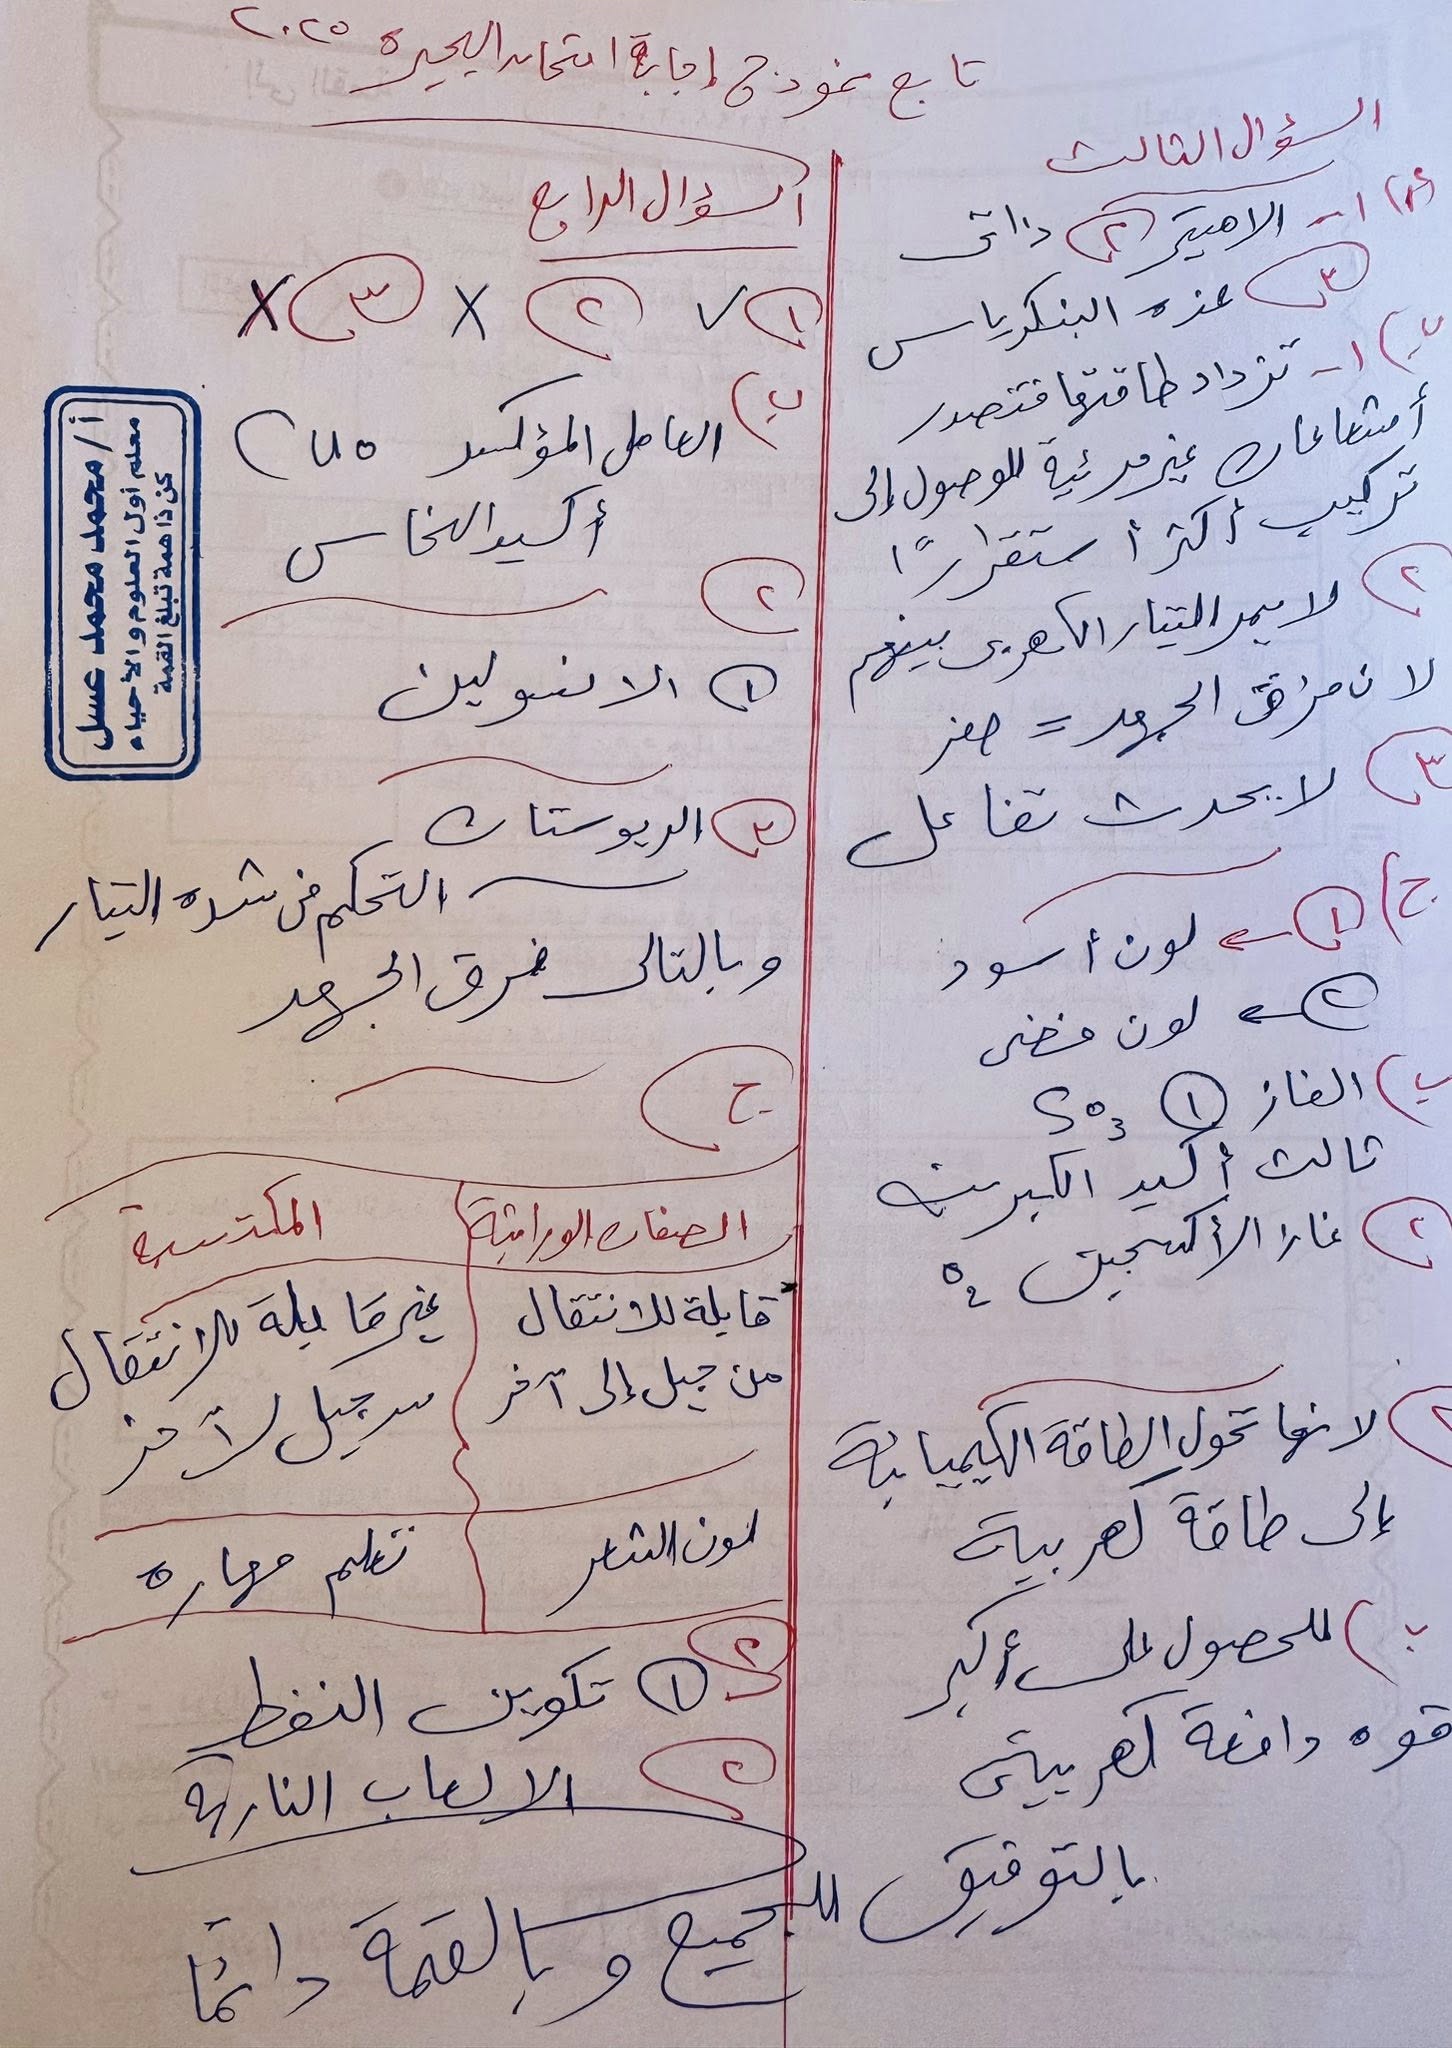 تابع نموذج إجابة امتحان البحيرة ٢٠٢٥
السؤال الثالث
أ) ١- الاميتر ٢ ذاتى
٣ غده البنكرياس
ب) ١- تزداد طاقتها فتصدر
أشعاعات غير مرئية للوصول إلى
تركيب أكثر أستقرارًا
٢ لا يمر التيار الكهربى بينهم
لان فرق الجهد = صفر
٣ لا يحدث تفاعل
ج) ١ ← لون أسود
٢ ← لون فضى
ب) الغاز ١ SO3
ثالث أكسيد الكبريت
٢ غاز الأكسجين O2
لانها تحول الطاقة الكيميائية
إلى طاقة كهربية
ب) للحصول على أكبر
قوه دافعة كهربية
السؤال الرابع
١ ✓ ٢ X ٣ X
ب) العامل المؤكسد CuO
أكسيد النحاس
٢
١ الانسولين
٣ الريوستات
التحكم فى شده التيار
وبالتالى فرق الجهد
ج
الصفات الوراثية المكتسبة
قابلة للانتقال غير قابلة للانتقال
من جيل إلى آخر من جيل لآخر
لون الشعر تعلم مهاره
١ تكوين النفط
٢ الالعاب النارية
بالتوفيق للجميع وبالقمة دائمًا
أ/محمد محمد عسل
معلم أول العلوم والأحياء
كن ذا همة تبلغ القمة